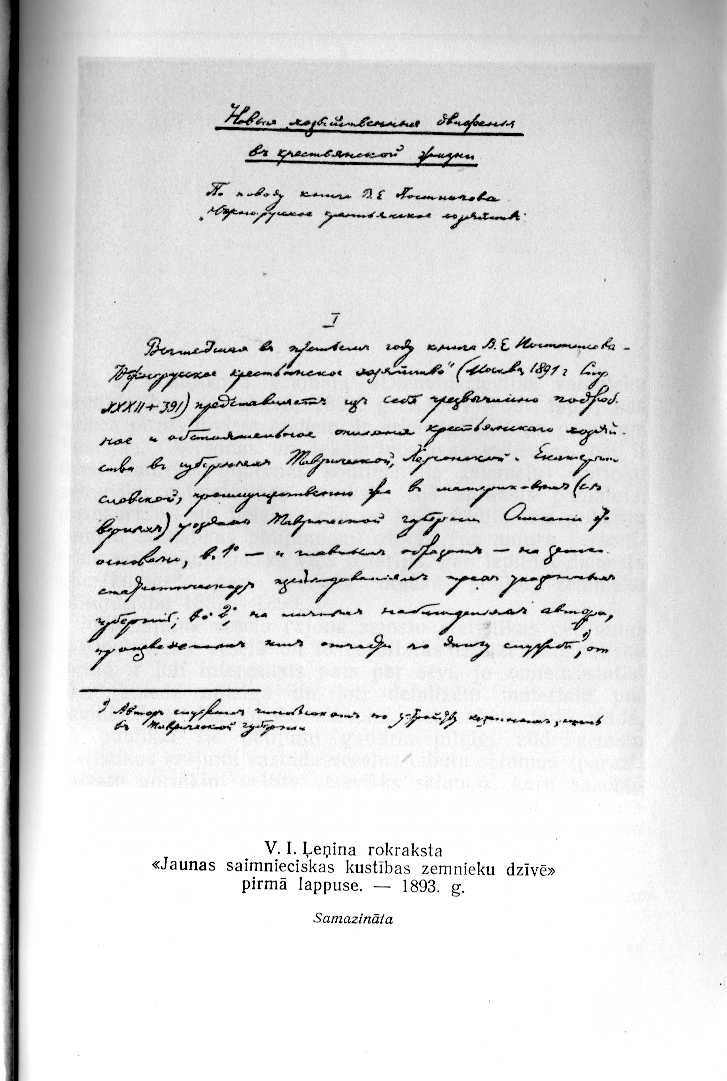 Новыя хозяйственныя движенія
въ крестьянской жизни
По поводу книги В.Е Постникова
„Южнорусское крестьянское хозяйство"
I
Вышедшая въ прошломъ году книга В.Е Постникова –
„Южнорусское крестьянское хозяйство" (Москва 1891 г Стр.
XXXII+391) представляетъ изъ себя чрезвычайно подроб-
ное и обстоятельное описаніе крестьянскаго хозяй-
ства въ губерніяхъ Таврической, Херсонской и Екатерино
славской, преимущественно же въ материковыхъ (сѣ
верныхъ) уѣздахъ Таврической губерніи Описаніе это
основано, во 1º — и главнымъ образомъ — на земско-
статистическихъ изслѣдованіяхъ трехъ указанныхъ
губерній; во 2º, на личныхъ наблюденіяхъ автора,
произведенныхъ имъ отчасти по долгу службы ¹), от
¹) Авторъ служилъ чиновникомъ по устройству казенныхъ земель
въ Таврической губерніи
V. I. Ļeņina rokraksta
«Jaunas saimnieciskas kustības zemnieku dzīvē»
pirmā lappuse. — 1893. g.
Samazināta